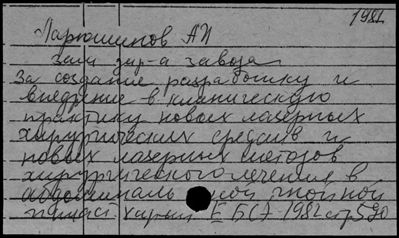 1981
Ларюшинов АИ
зам дир-а завода
За создание, разработку и
внедрение в клиническую
практику новых лазерных
хирургических средств и
новых лазерных методов
хирургического лечения в
абдоминальной гнойной
пласт. хирург. ЕБСЭ 1982 стр 590